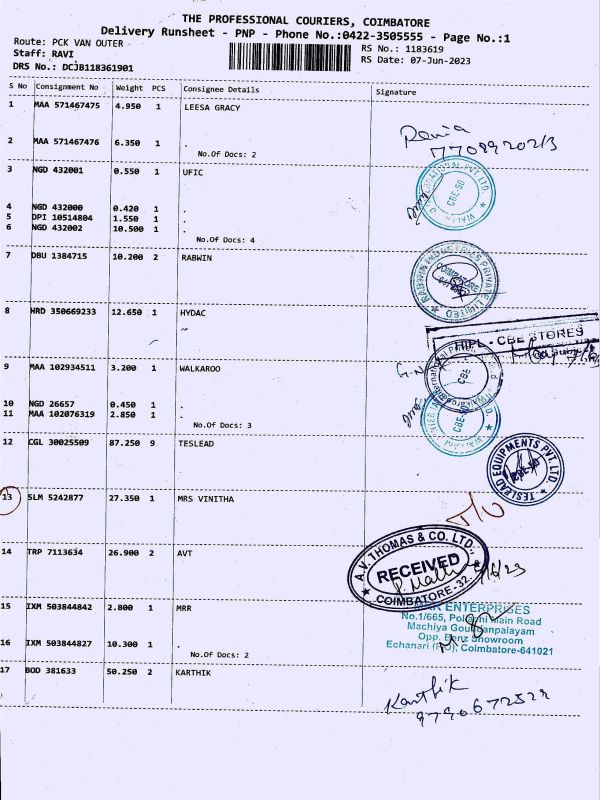 THE PROFESSIONAL COURIERS, COIMBATORE
Delivery Runsheet - PNP - Phone No.:0422-3505555 - Page No.:1
Route: PCK VAN OUTER
RS No.: 1183619
Staff: RAVI
RS Date: 07-Jun-2023
DRS No.: DCJB118361901
S No Consignment No Weight PCS Consignee Details Signature
1 MAA 571467475 4.950 1 LEESA GRACY
2 MAA 571467476 6.350 1 .
No.Of Docs: 2
3 NGD 432001 0.550 1 UFIC
CBE-50
4 NGD 432000 0.420 1 .
5 DPI 10514804 1.550 1 .
6 NGD 432002 10.500 1 .
No.Of Docs: 4
7 DBU 1384715 10.200 2 RABWIN
RABWIN INDUSTRIES PRIVATE LIMITED
COIMBATORE
8 HRD 350669233 12.650 1 HYDAC
HIPL - CBE STORES
9 MAA 102934511 3.200 1 WALKAROO
CBE
10 NGD 26657 0.450 1 .
11 MAA 102076319 2.850 1 .
No.Of Docs: 3
CBE-50
12 CGL 30025509 87.250 9 TESLEAD
TESLEAD EQUIPMENTS PVT. LTD
13 SLM 5242877 27.350 1 MRS VINITHA
14 TRP 7113634 26.900 2 AVT
A.V. THOMAS & CO. LTD.,
RECEIVED
COIMBATORE - 32.
15 IXM 503844842 2.800 1 MRR
ENTERPRISES
No.1/665, Pollachi Main Road
Machiya Goundanpalayam
Opp. Benz Showroom
Echanari (P.O), Coimbatore-641021
16 IXM 503844827 10.300 1 .
No.Of Docs: 2
17 BOD 381633 50.250 2 KARTHIK
Karthik